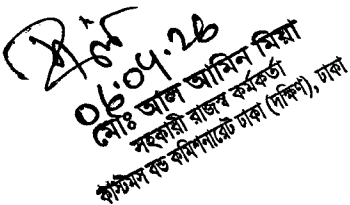 06.04.26
মোঃ আল আমিন মিয়া
সহকারী রাজস্ব কর্মকর্তা
কাস্টমস বন্ড কমিশনারেট ঢাকা (দক্ষিণ), ঢাকা